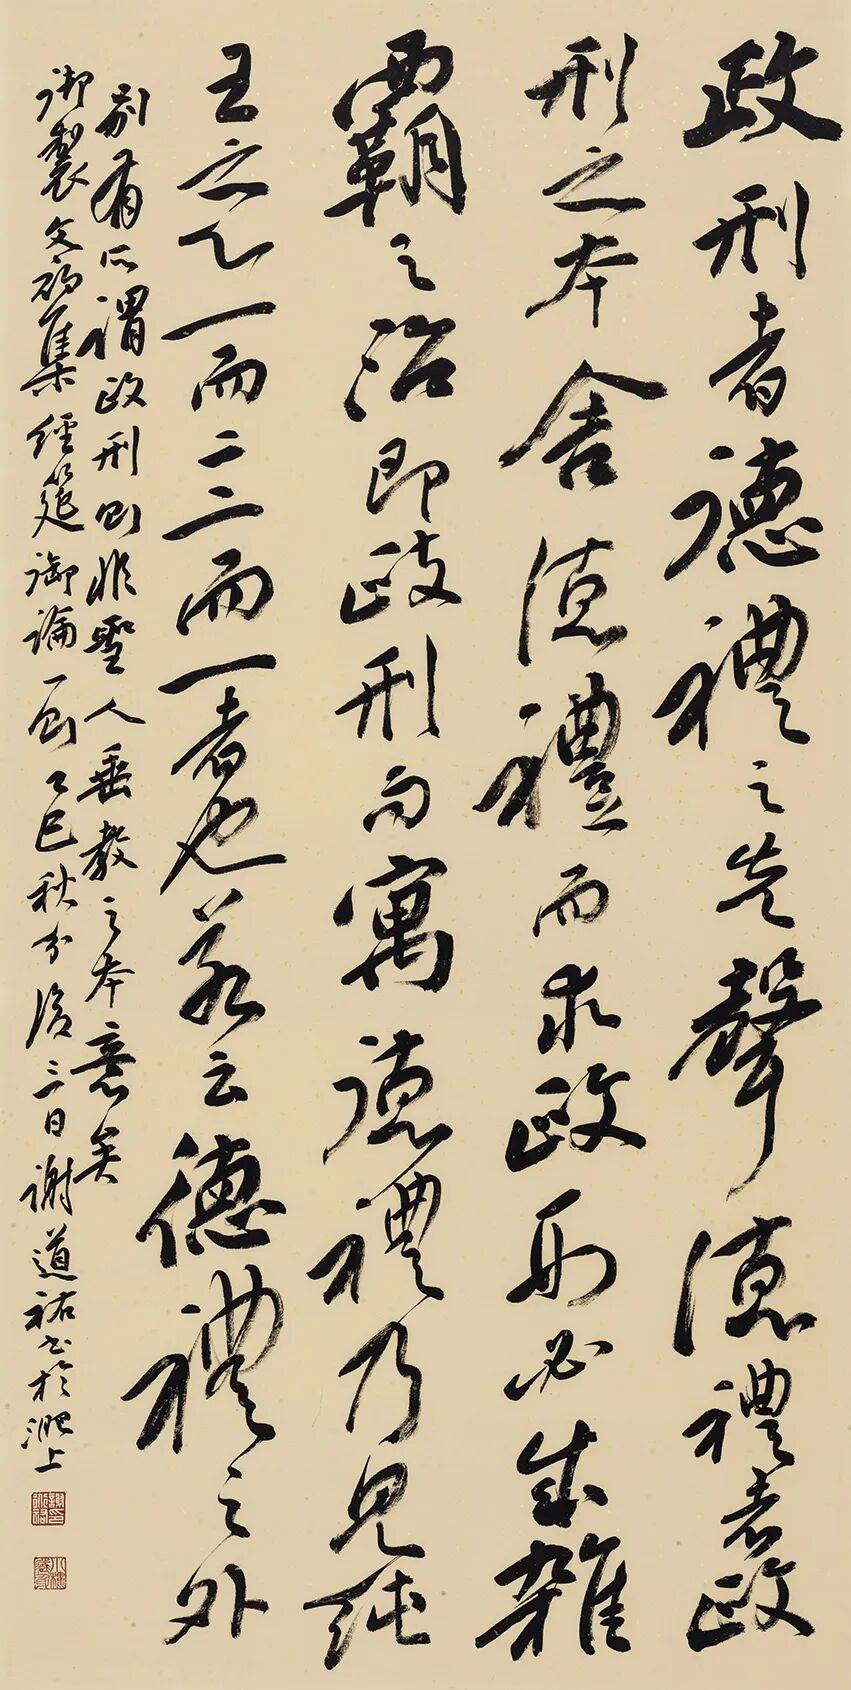 政刑者德禮之先聲德禮者政
刑之本舍德禮而求政刑必成雜
霸之治即政刑而寓德禮乃見純
王之心一而二二而一者也若云德禮之外
別有所謂政刑則非聖人垂教之本意矣
御製文初集經筵御論一則乙巳秋分後三日謝道祐書於淝上